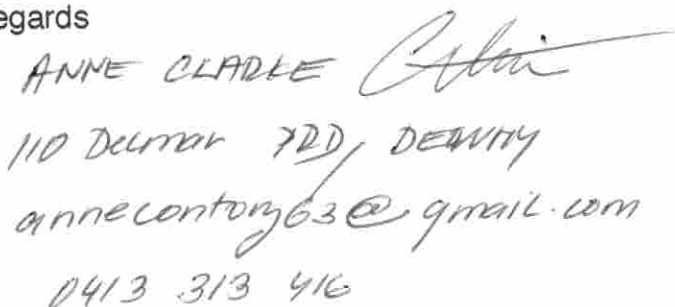 egards
ANNE CLARKE
110 Delmar PDE, DEEWHY
anneconton63@gmail.com
0413 313 416